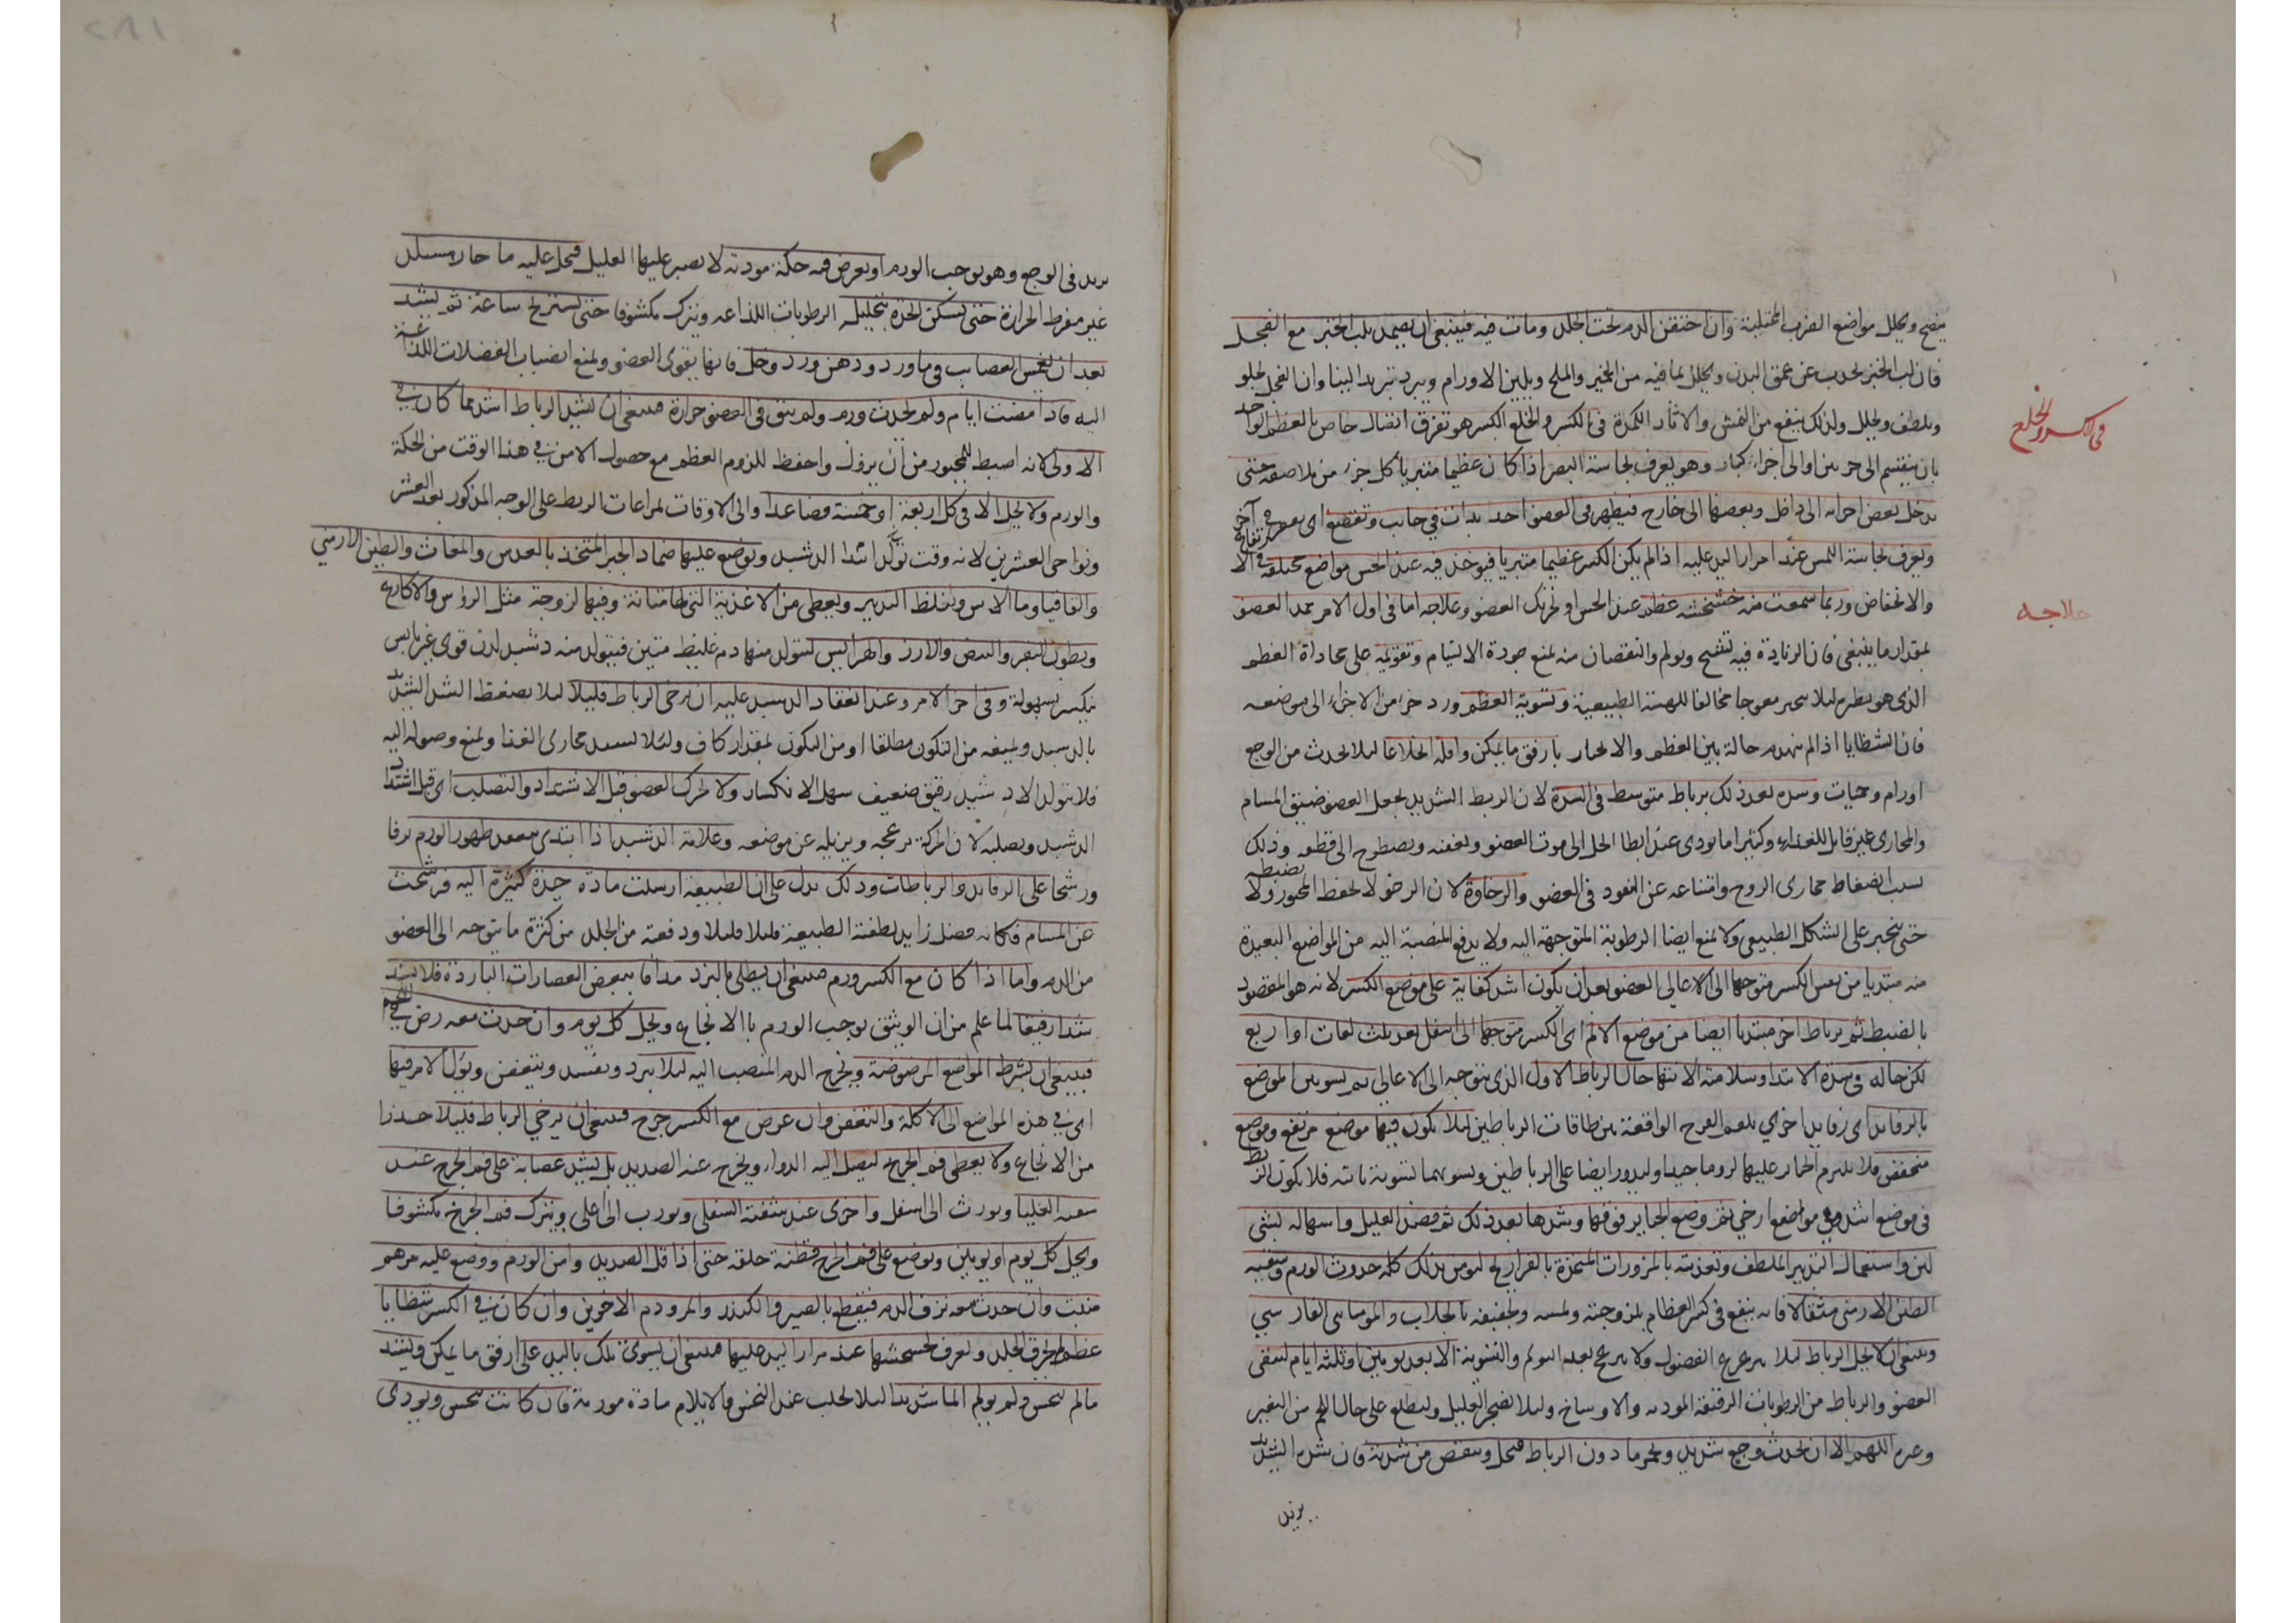 ينضج ويحلل مواضع الضرب المختلفة وان احتقن الدم تحت الجلد ومات فيه فينبغي ان يضمد بلب الخبز مع الفجل
فان لب الخبز يجذب عن عمق البدن ويحلل بما فيه من الخمير والملح ويلين الاورام ويبرد تبريدا لينا وان الفجل يجلو
ويلطف ويحلل ولذلك ينفع من النمش والاثار الكمدة في الكسر والخلع الكسر هو تفرق اتصال خاص بالعظم الواحد
في الكسر والخلع
بان ينقسم الى جزئين او الى اجزاء كبار وهو يعرف بحاسة البصر اذا كان عظيما متبريا كل جزء من ملاصقه حتى
يدخل بعض اجزائه الى داخل وبعضها الى خارج فيظهر في العضو احديداب في جانب وتقصيع اى تقعر في آخر
ويعرف بحاسة اللمس عند امرار اليد عليه اذا لم يكن الكسر عظيما متبريا فيوخذ فيه عند الجس مواضع مختلفة في الارتفاع
والانخفاض وربما سمعت منه خشخشة عظمه عند الجس او تحريك العضو وعلاجه اما في اول الامر يمد العضو
علاجه
بمقدار ما ينبغى فان الزيادة فيه تشنج ويولم والنقصان منه يمنع جودة الالتيام وتقويمه على محاذاة العظم
الذى هو نظيره ليلا ينجبر معوجا مخالفا للهيئة الطبيعية وتسوية العظم ورد جزء من الاجزاء الى موضعه
فان الشظايا اذا لم تنهدم حالة بين العظم والانجبار بارفق ما يمكن واقله ايلاما ليلا يحدث من الوجع
اورام وحميات وشده بعد ذلك برباط متوسط فى الشدة لان الربط الشديد يجعل العضو ضيق المسام
والمجارى غير قابل للغذاء وكثيرا ما يودى عند ابطا الحل الى موت العضو وتعفنه ويصطرح الى قطعه وذلك
بسبب انضغاط مجارى الروح وامتناعه عن النفود فى العضو والرخاوة لان الرخو لا يحفظ المجبور ولا يضبطه
حتى ينجبر على الشكل الطبيعى ولا يمنع ايضا الرطوبة المتوجهة اليه ولا يدفع المنصبة اليه من المواضع البعيدة
منه مبتديا من نفس الكسر متوجها الى الاعالى العضو بعد ان يكون اشد كفاية على موضع الكسر لانه هو المقصود
بالضبط ثم برباط اخر مبتديا ايضا من موضع الالم اى الكسر متوجها الى اسفل بعد ثلث لفات او اربع
لكن حاله في شدة الابتدا وسلامة الانتها حال الرباط الاول الذى يتوجه الى الاعالى ثم تسويين الموضع
بالرفايد اى رفايد اخرى تلقم الفرج الواقعة بين طاقات الرباطين ليلا يكون فيها موضع مرتفع وموضع
منخفض فلا يلتزم الجبار عليهما لزوما جيدا وليدور ايضا على الرباطين ويسويهما تسوية تامة فلا يكون الربط
فى موضع اشد وفى مواضع ارخى ثم وضع الجباير فوقها وشدها بعد ذلك ثم فصد العليل واسهاله بشئ
لين واستعمال التدبير الملطف وتغذيته بالمزورات المتخذة بالفراريج ليومن بذلك كله حدوث الورم وسقيه
الطين الارمنى مثقالا فانه ينفع فى كسر العظام بلزوجته ويبسه وتجفيفه بالجلاب والمومياى الفارسي
وينبغى ان لا يحل الرباط ليلا يتزعزع العضو ولا يزيح بعد التقويم والتسوية الا بعد يومين او ثلثة ايام لينقى
العضو والرباط من الرطوبات الرقيقة الموذية والاوساخ وليلا يضجر العليل وليطلع على حال اللحم من التغير
وعدمه اللهم الا ان يحدث وجع شديد ويحمر ما دون الرباط فيحل وينقص من شدته فان شده الشديد
يزيد
يزيد فى الوجع وهو يوجب الورم او يعرض فيه حكة موذية لا يصبر عليها العليل فيحل عليه ما حار مستدلل
غير مفرط الحرارة حتى تسكن الحدة بتحليله الرطوبات اللذاعة ويترك مكشوفا حتى يستريح ساعة ثم يشد
بعد ان يغمس العصايب فى ماورد ودهن ورد وخل فانها يقوى العضو ويمنع انصباب الفضلات اللذاعة
اليه فاذا مضت ايام ولم يحدث ورم ولم يبق فى العضو حرارة فينبغى ان يشد الرباط اشد مما كان في
الاولى لانه اضبط للمجبور من ان يزول واحفظ للزوم العظم مع حصول الامن في هذا الوقت من الحكة
والورم ولا يحل الا فى كل اربعة او خمسة فصاعدا والى الاوقات لمراعات الربط على الوجه المذكور بعد العشر
ونواحى العشرين لانه وقت تولد ابتدا الدشبد ويوضع عليها ضماد الجبر المتخذ بالعدس والمغاث والطين الارمني
والقاقيا وما الاس ويغلظ التدبير ويعطى من الاغذية التى لها متانة وفيها لزوجة مثل الرؤس والاكارع
وبطون البقر والبيض والارز والهرايس لتولد منها دم غليظ متين فيتولد منه دشبد لدن قوى غير يابس
ينكسر بسهولة وفى اخر الامر وعند انعقاد الدشبد عليه ان يرخى الرباط قليلا ليلا يضغط الشد الشديد
بالدشبد ويمنعه من التكون مطلقا او من التكون بمقدار كاف وليلا ينسد مجارى الغذا ويمنع وصوله اليه
فلا يتولد الا دشبد رقيق ضعيف سهل الانكسار ولا يحرك العضو قبل الاشتداد والتصلب اى قبل اشتداد
الدشبد وتصلبه لان الحركة تزعجه ويزيله عن موضعه وعلامة الدشبد اذا ابتدى ينعقد ظهور الورم ترفا
ورشحا على الرفايد والرباطات وذلك يدل على ان الطبيعة ارسلت مادة جيدة كثيرة اليه فرشحت
عن المسام فكانه فضل زايد لطفته الطبيعة قليلا قليلا ودفعته من الجلد من كثرة ما يتوجه الى العضو
من الدم واما اذا كان مع الكسر ورم فينبغى ان يطلى بالبزد مدافا ببعض العصارات الباردة فلا يشد
شدا رفيقا لما علم من ان الوثيق يوجب الورم بالايجاع ويحل كل يوم وان حدث معه رض في اللحم
فينبغى ان يشرط المواضع المرضوضة ويخرج الدم المنصب اليه ليلا يبرد ويفسد ويتعفن ويؤل الامر فيها
اى في هذه المواضع الى الاكلة والتعفن وان عرض مع الكسر جرح فينبغى ان يرخى الرباط قليلا حذرا
من الايجاع ولا يغطى فم الجرح ليصل اليه الدواء ويخرج عنه الصديد بل يشد عصابة على فم الجرح عند
شفته العليا ويورب الى اسفل واخرى عند شفته السفلى ويورب الى اعلى ويترك فم الجرح مكشوفا
ويحل كل يوم او يومين ويوضع على فم الجرح قطنة خلقة حتى اذا قل الصديد وامن الورم ووضع عليه مرهم
منبت وان حدث معه نزف الدم فيقطع بالصبر والكندر والمر ودم الاخوين وان كان في الكسر شظايا
عظم لم يخرق الجلد ويعرف بخشخشتها عند مرار اليد عليها فينبغى ان يسوى تلك باليد على ارفق ما يمكن ويشد
ما لم تنخس ولم يولم الما شديدا ليلا يجلب عند النخس والايلام مادة مورمة فان كانت تنخس ويوذى